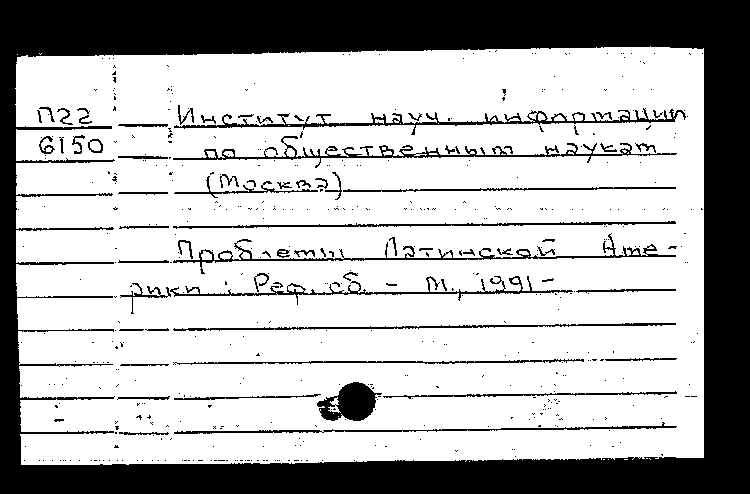 П22 Институт науч. информации
6150 по общественным наукам
(Москва).
Проблемы Латинской Аме-
рики : Реф. сб. - М., 1991-